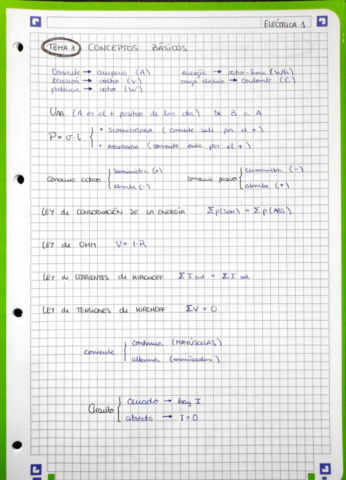 ELÉCTRICA 1
TEMA 1 CONCEPTOS BÁSICOS
Corriente → amperio (A)
energía → vatio-hora (Wh)
tensión → voltio (V)
carga eléctrica → coulomb (C)
potencia → vatio (W)
(A es el + positivo de los dos) de B a A
P = v·i
• SUMINISTRADA (corriente sale por el +)
• ABSORBIDA (corriente entra por el +)
Convenio activo
suministra (+)
absorbe (-)
convenio pasivo
suministra (-)
absorbe (+)
LEY de CONSERVACIÓN DE LA ENERGÍA Σp(SUM) = Σp(ABS)
LEY de OHM V = I·R
LEY de CORRIENTES DE KIRCHOFF Σ I ent = Σ I sal
LEY de TENSIONES DE KIRCHOFF ΣV = 0
corriente
continua (MAYÚSCULAS)
alterna (minúsculas)
Circuito
cerrado → hay I
abierto → I=0